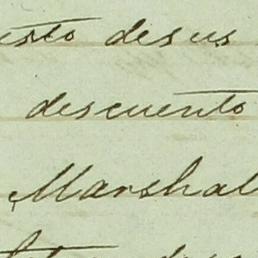 esto des us
descuento
Marshal